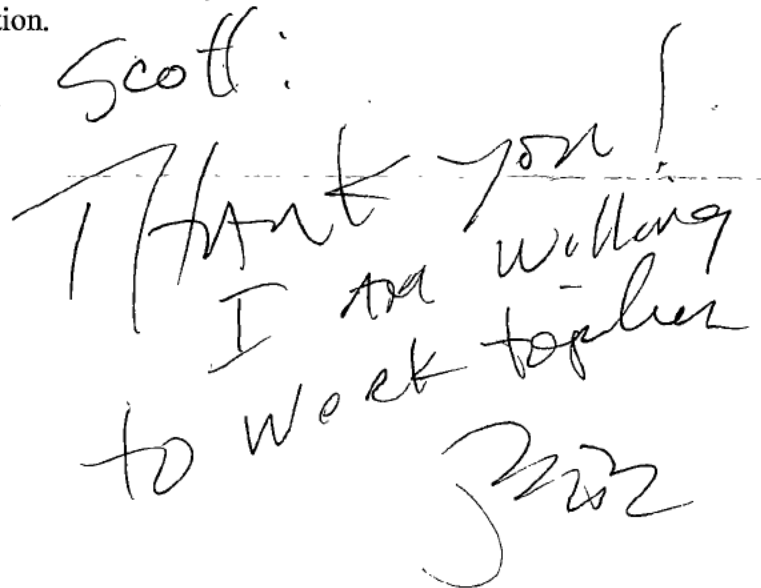 tion.
Scott:
Thank you!
I am willing
to work together